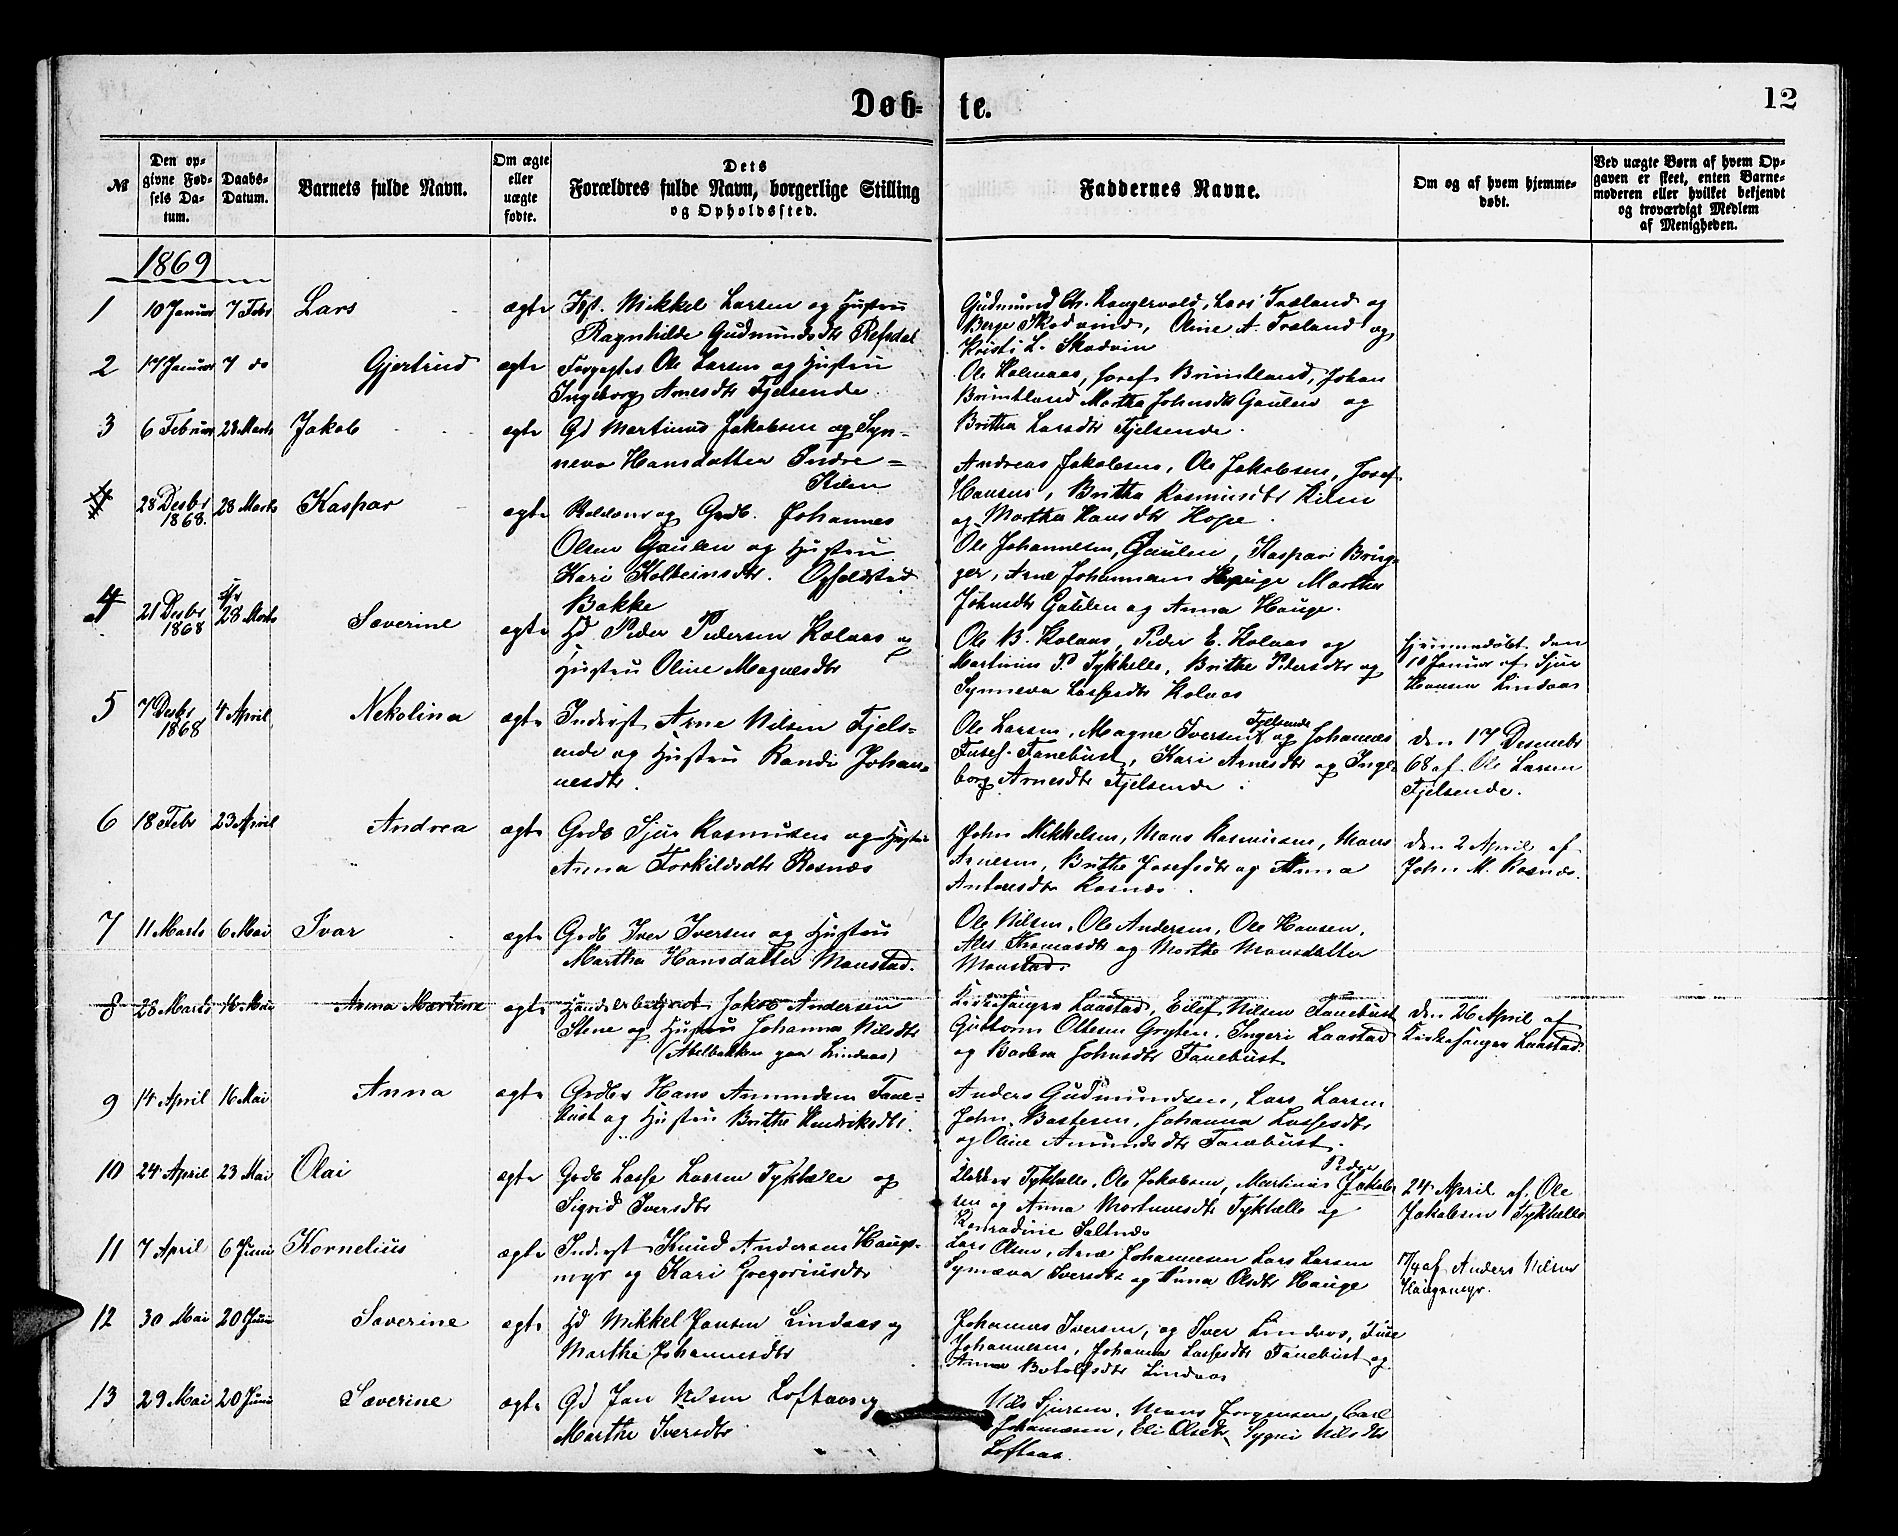 Døb-te.
12
№
Den op-
givne Fød-
sels Da-
tum.
Daabs-
Datum.
Barnets fulde Navn.
Om ægte
eller
uægte
fødte.
Dets
Forældres fulde Navn, borgerlige Stilling
og Opholdssted.
Faddernes Navne.
Om og af hvem hjemme-
døbt.
Ved uægte Børn af hvem Op-
gaven er skeet, enten Barne-
moderen eller hvilket bekjendt
og troværdigt Medlem
af Menigheden.
1869
1 10 Januar 7 Febr Lars ægte Mikkel Larsen og Hustru
Ragnhilde Gudmundsdtr Refsdal
Gudmund Lars Træland og
Berge Skodvind, Oline A. Træland og
Kristi L. Skodvin
2 17 Januar 7 do Gjertrud ægte Ole Larsen og Hustru
Ingeborg Arnesdtr Fjelsende
Ole Kolaas, Josef Brimtland, Johan
Brimtland Martha Johnsdtr Gaulen og
Britha Larsdtr Fjelsende.
3 6 Februar 28 Marts Jakob ægte Gd Martinus Jakobsen og Syn-
neva Hansdatter Indre-
Kilen
Andreas Jakobsen, Ole Jakobsen, Josef
Hansen, Britha Rasmusdtr Kilen
og Martha Hansdtr Hope.
28 Desbr
1868. 28 Marts Kaspar ægte og Grdb. Johannes
Olsen Gaulen og Hustru
Kari Kolbeinsdtr. Opholdsted
Bakke
Ole Johannesen, Gaulen, Kaspar Brug-
ger, Arne Johannesen Martha
Johnsdtr Gaulen og Anna Hauge.
4 21 Desbr
1868 28 Marts Severine ægte Hd Peder Pedersen Kolaas og
Hustru Oline Magnesdtr
Ole B. Kolaas, Peder E. Kolaas og
Martinus P Tykhelle, Brithe Pedersdtr og
Synneva Lassesdtr Kolaas
Hjemmedøbt den
10 Januar af Sjur
Hansen Lindaas
5 7 Desbr
1868 4 April Nekolina ægte Inderst Arne Nilsen Fjels-
ende og Hustru Randi Johan-
nesdtr.
Ole Larsen, Magne Iversen Fjelsende og Johannes
Josef. Fanebust, Kari Arnesdtr og Inge-
borg Arnesdtr Fjelsende.
den 17 Desembr
68 af Ole Larsen
Fjelsende.
6 18 Febr 23 April Andrea ægte Grdb Sjur Rasmusen og Hustru
Anna Torkildsdtr Rosnæs
John Mikkelsen, Mons Rasmusen, Mons
Arnesen, Brithe Josefsdtr og Anna
Antonsdtr Rosnæs.
den 2 April af
John M. Rosnæs.
7 11 Marts 6 Mai Ivar ægte Grdb Iver Iversen og Hustru
Martha Hansdatter Monstad.
Ole Nilsen, Ole Andersen, Ole Hansen,
Ales Thomasdtr og Marthe Monsdatter
Monstad.
8 28 Marts 16 Mai Anna Martine ægte Handelsbetjent Jakob Andersen
Stene og Hustru Johanna Nilsdtr
(Abelbakken paa Lindaas)
Kirkesanger Laastad, Eilef Nilsen Fanebust
Guttorm Ottesen Gryten, Ingeri Laastad
og Barbra Johnsdtr Fanebust
den 26 April af
Kirkesanger Laastad.
9 14 April 16 Mai Anna ægte Grdbr Hans Amundsen Fane-
bust og Hustru Brithe Henriksdtr.
Anders Gudmundsen, Lars Larsen
John Bastesen, Johanna Lassesdtr
og Oline Amundsdtr Fanebust.
10 24 April 23 Mai Olai ægte Grdb Lasse Larsen Tykhelle og
Sigrid Iversdtr
Tykhelle, Ole Jakobsen, Martinus Peder Jakob-
sen og Anna Martinusdtr Tykhelle og
Konradine Saltnæs
24 April af Ole
Jakobsen Tykhelle
11 7 April 6 Juni Kornelius ægte Inderst Knud Andersen Haugs-
myr og Kari Gregoriusdtr
Lars Olsen, Arne Johannesen Lars Larsen
Synneva Iversdtr og Anna Olsdtr Hauge
17/4 af Anders Nilsen
Haugsmyr.
12 30 Mai 20 Juni Severine ægte Hd Mikkel Hansen Lindaas og
Marthe Johannesdtr
Johannes Iversen, og Iver Lindaas,
Johannesen, Johanna Lassesdtr Fanebust og
Anna Botolfsdtr Lindaas
13 29 Mai 20 Juni Severine ægte Gd Jan Nilsen Loftaas og
Marthe Iversdtr
Nils Sjursen, Mons Jørgensen, Carl
Johannesen, Eli Olsdtr, Nilsdtr
Loftaas.